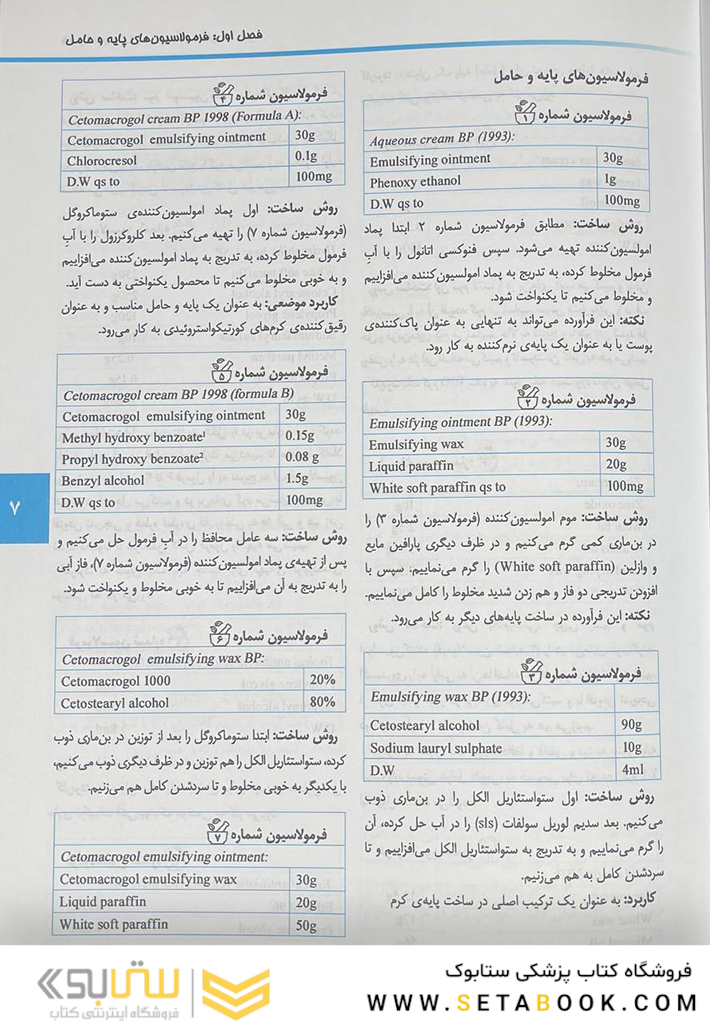 فصل اول: فرمولاسیون‌های پایه و حامل
فرمولاسیون‌های پایه و حامل
فرمولاسیون شماره ۱
Aqueous cream BP (1993):
Emulsifying ointment 30g
Phenoxy ethanol 1g
D.W qs to 100mg
روش ساخت: مطابق فرمولاسیون شماره ۲ ابتدا پماد
امولسیون‌کننده تهیه می‌شود. سپس فنوکسی اتانول را با آب
فرمول مخلوط کرده، به تدریج به پماد امولسیون‌کننده می‌افزاییم
و مخلوط می‌کنیم تا یکنواخت شود.
نکته: این فرآورده می‌تواند به تنهایی به عنوان پاک‌کننده‌ی
پوست یا به عنوان یک پایه‌ی نرم‌کننده به کار رود.
فرمولاسیون شماره ۲
Emulsifying ointment BP (1993):
Emulsifying wax 30g
Liquid paraffin 20g
White soft paraffin qs to 100mg
روش ساخت: موم امولسیون‌کننده (فرمولاسیون شماره ۳) را
در بن‌ماری کمی گرم می‌کنیم و در ظرف دیگری پارافین مایع
و وازلین (White soft paraffin) را گرم می‌نماییم، سپس با
افزودن تدریجی دو فاز و هم زدن شدید مخلوط را کامل می‌نماییم.
نکته: این فرآورده در ساخت پایه‌های دیگر به کار می‌رود.
فرمولاسیون شماره ۳
Emulsifying wax BP (1993):
Cetostearyl alcohol 90g
Sodium lauryl sulphate 10g
D.W 4ml
روش ساخت: اول ستواستئاریل الکل را در بن‌ماری ذوب
می‌کنیم. بعد سدیم لوریل سولفات (sls) را در آب حل کرده، آن
را گرم می‌نماییم و به تدریج به ستواستئاریل الکل می‌افزاییم و تا
سردشدن کامل به هم می‌زنیم.
کاربرد: به عنوان یک ترکیب اصلی در ساخت پایه‌ی کرم
فرمولاسیون شماره ۴
Cetomacrogol cream BP 1998 (Formula A):
Cetomacrogol emulsifying ointment 30g
Chlorocresol 0.1g
D.W qs to 100mg
روش ساخت: اول پماد امولسیون‌کننده‌ی ستوماکروگل
(فرمولاسیون شماره ۷) را تهیه می‌کنیم. بعد کلروکرزول را با آب
فرمول مخلوط کرده، به تدریج به پماد امولسیون‌کننده می‌افزاییم
و به خوبی مخلوط می‌کنیم تا محصول یکنواختی به دست آید.
کاربرد موضعی: به عنوان یک پایه و حامل مناسب و به عنوان
رقیق‌کننده‌ی کرم‌های کورتیکواستروئیدی به کار می‌رود.
فرمولاسیون شماره ۵
Cetomacrogol cream BP 1998 (formula B)
Cetomacrogol emulsifying ointment 30g
Methyl hydroxy benzoate¹ 0.15g
Propyl hydroxy benzoate² 0.08 g
Benzyl alcohol 1.5g
D.W qs to 100mg
روش ساخت: سه عامل محافظ را در آب فرمول حل می‌کنیم و
پس از تهیه‌ی پماد امولسیون‌کننده (فرمولاسیون شماره ۷)، فاز آبی
را به تدریج به آن می‌افزاییم تا به خوبی مخلوط و یکنواخت شود.
فرمولاسیون شماره ۶
Cetomacrogol emulsifying wax BP:
Cetomacrogol 1000 20%
Cetostearyl alcohol 80%
روش ساخت: ابتدا ستوماکروگل را بعد از توزین در بن‌ماری ذوب
کرده، ستواستئاریل الکل را هم توزین و در ظرف دیگری ذوب می‌کنیم،
با یکدیگر به خوبی مخلوط و تا سردشدن کامل هم می‌زنیم.
فرمولاسیون شماره ۷
Cetomacrogol emulsifying ointment:
Cetomacrogol emulsifying wax 30g
Liquid paraffin 20g
White soft paraffin 50g
۷
فروشگاه کتاب پزشکی ستابوک
WWW.SETABOOK.COM
ستابوک
فروشگاه اینترنتی کتاب